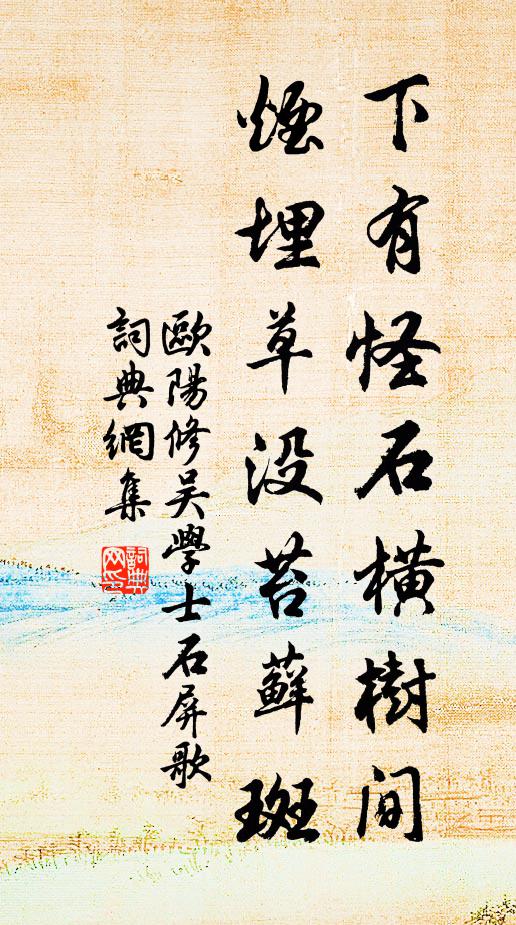 下有怪石橫樹间
煙埋草没苔蘚斑
歐陽修吴學士石屏歌
詞典網集